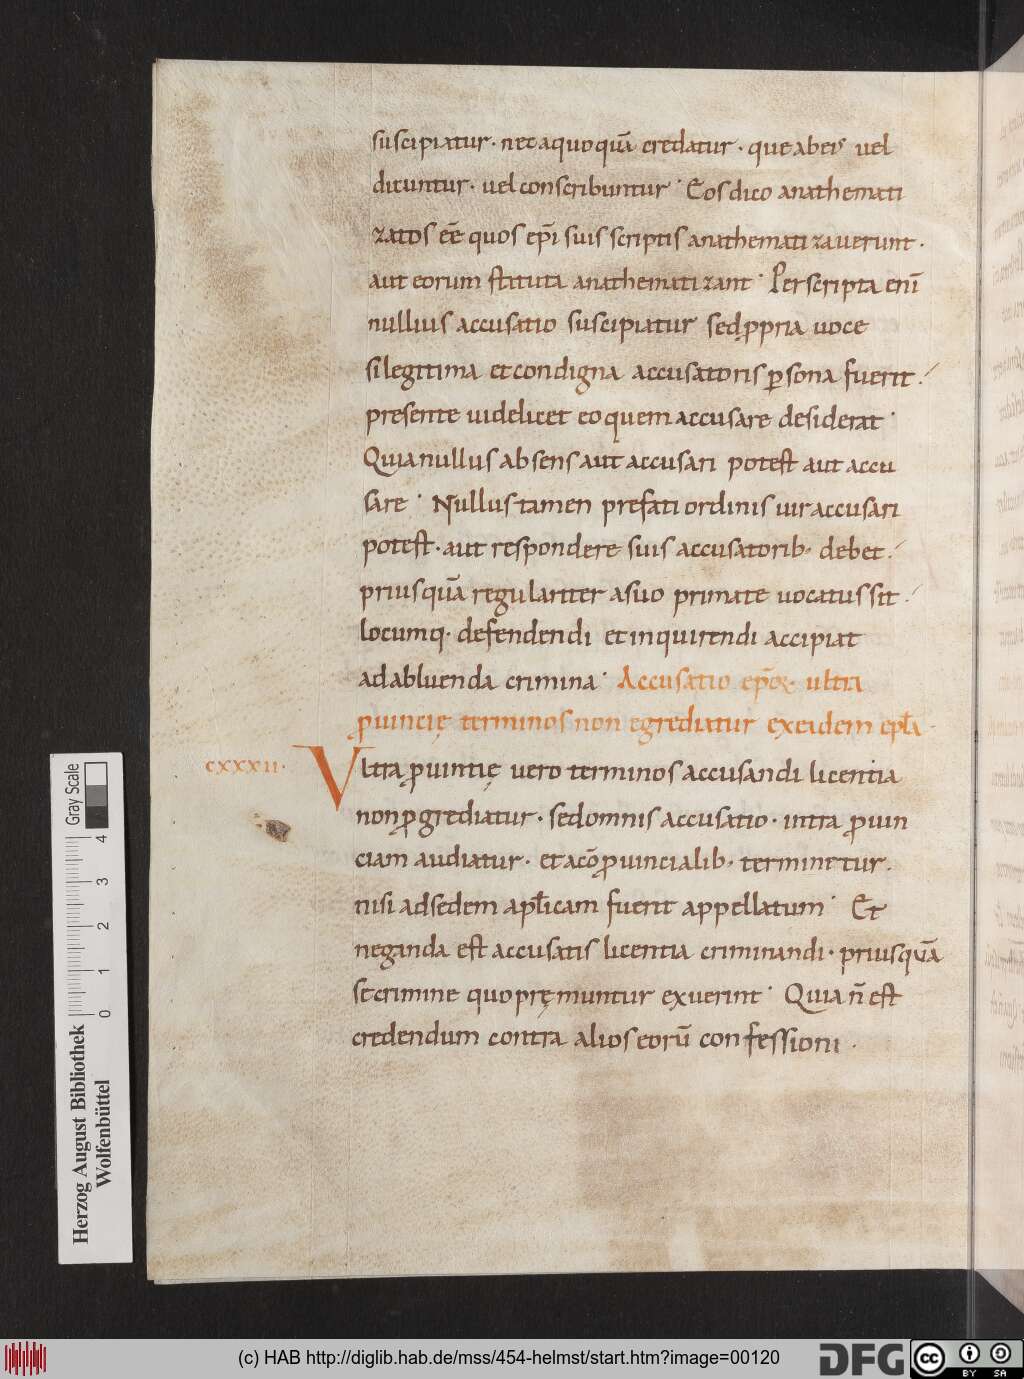 suscipiatur · nec aquoquā credatur · que ab eis vel
dicuntur · uel conscribuntur · Eos dico anathemati
zatos eē quos ep̄i suis scriptis anathematizauerunt ·
aut eorum statuta anathematizant · Per scripta eni̅
nullius accusatio suscipiatur sed ꝓpria uoce
si legitima et condigna accusatoris ꝑsona fuerit ·
presente uidelicet eo quem accusare desiderat ·
Quia nullus absens aut accusari potest aut accu
sare · Nullus tamen prefati ordinis uir accusari
potest · aut respondere suis accusatorib; debet ·
priusquā regulariter a suo primate uocatus sit ·
locumq; defendendi et inquirendi accipiat
ad abluenda crimina · Accusatio ep̄oꝝ ultra
ꝓuincię terminos non egrediatur ex eidem epl̄a ·
CXXXII · Vltra ꝓuintię uero terminos accusandi licentia
non ꝓgrediatur · sed omnis accusatio · intra ꝓuin
ciam audiatur · et a cōꝓuincialib; terminetur ·
nisi ad sedem apl̄icam fuerit appellatum · Et
neganda est accusatis licentia criminandi · priusquā
se crimine quo pręmuntur exuerint · Quia n̄ est
credendum contra alios eorū confessioni ·
Gray Scale
4 3 2 1 0
Herzog August Bibliothek
Wolfenbüttel
(c) HAB http://diglib.hab.de/mss/454-helmst/start.htm?image=00120
DFG
cc BY SA